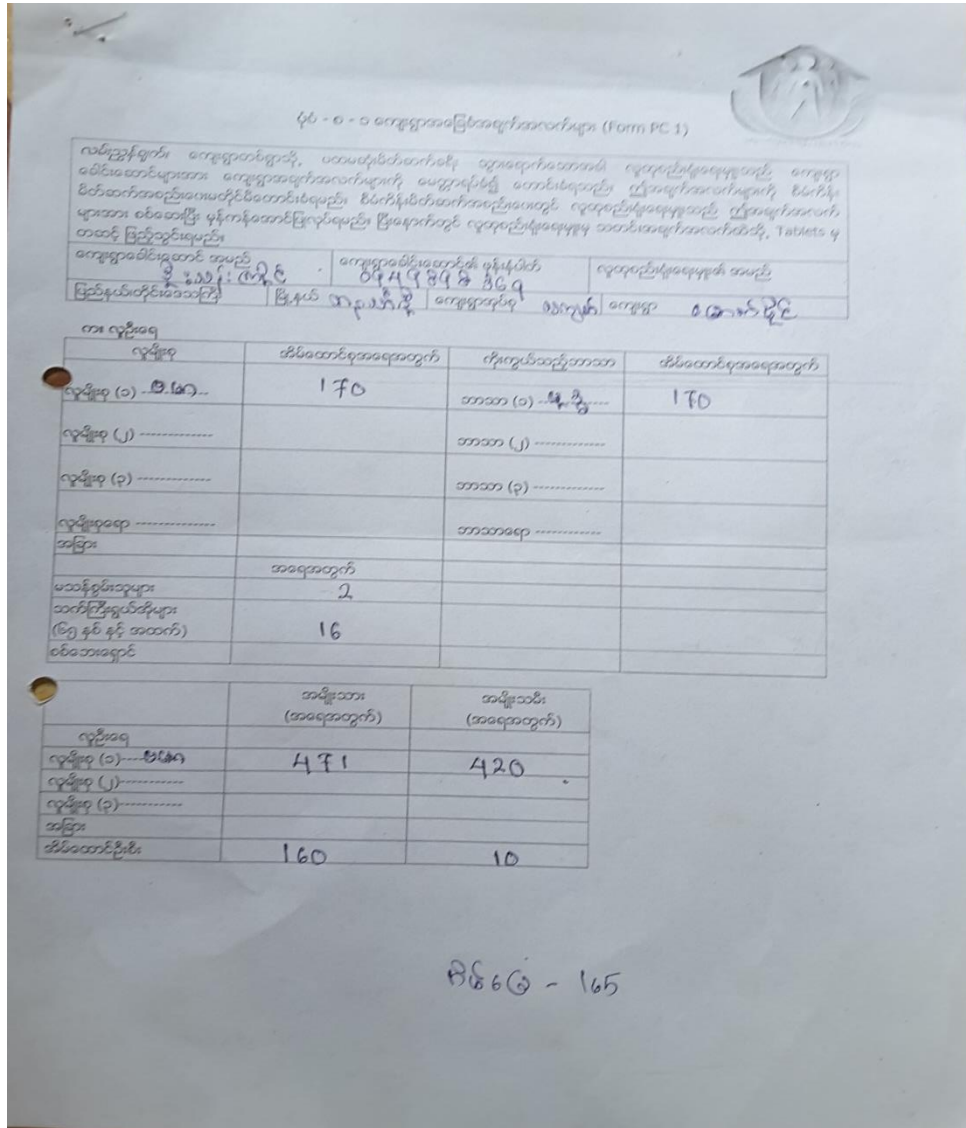 ပုံစံ - စ - ၁ ကျေးရွာအခြေပြအချက်အလက်များ (Form PC 1)
လမ်းညွှန်ချက်။ ကျေးရွာတစ်ရွာသို့ ပထမဆုံးမိတ်ဆက်ခရီး သွားရောက်သောအခါ လူထုစည်းရုံးရေးမှူးသည် ကျေးရွာ
ခေါင်းဆောင်များအား ကျေးရွာအချက်အလက်များကို မေတ္တာရပ်ခံ၍ တောင်းခံရမည်။ ဤအချက်အလက်များကို စီမံကိန်း
မိတ်ဆက်အစည်းအဝေးမတိုင်မီတောင်းခံရမည်။ စီမံကိန်းမိတ်ဆက်အစည်းအဝေးတွင် လူထုစည်းရုံးရေးမှူးသည် ဤအချက်အလက်
များအား စစ်ဆေးပြီး မှန်ကန်အောင်ပြုလုပ်ရမည်။ ပြီးနောက်တွင် လူထုစည်းရုံးရေးမှူးမှ သတင်းအချက်အလက်ထဲသို့ Tablets မှ
တဆင့် ဖြည့်သွင်းရမည်။
ကျေးရွာခေါင်းဆောင် အမည် ကျေးရွာခေါင်းဆောင်၏ ဖုန်းနံပါတ် လူထုစည်းရုံးရေးမှူး၏ အမည်
ပြည်နယ်/တိုင်းဒေသကြီး မြို့နယ် ကျေးရွာအုပ်စု ကျေးရွာ
က။ လူဦးရေ
လူမျိုးစု အိမ်ထောင်စုအရေအတွက် ကိုးကွယ်သည့်ဘာသာ အိမ်ထောင်စုအရေအတွက်
လူမျိုးစု (၁) ဗမာ 170 ဘာသာ (၁) ဗုဒ္ဓ 170
လူမျိုးစု (၂) ------------- ဘာသာ (၂) -------------
လူမျိုးစု (၃) ------------- ဘာသာ (၃) -------------
လူမျိုးစုရော -------------- ဘာသာရော ------------
အခြား
အရေအတွက်
မသန်စွမ်းသူများ 2
သက်ကြီးရွယ်အိုများ
(၆၅ နှစ် နှင့် အထက်) 16
စစ်ဘေးရှောင်
အမျိုးသား အမျိုးသမီး
(အရေအတွက်) (အရေအတွက်)
လူဦးရေ
လူမျိုးစု (၁) ဗမာ 471 420
လူမျိုးစု (၂)------------
လူမျိုးစု (၃)------------
အခြား
အိမ်ထောင်ဦးစီး 160 10
အိမ်ခြေ - 165